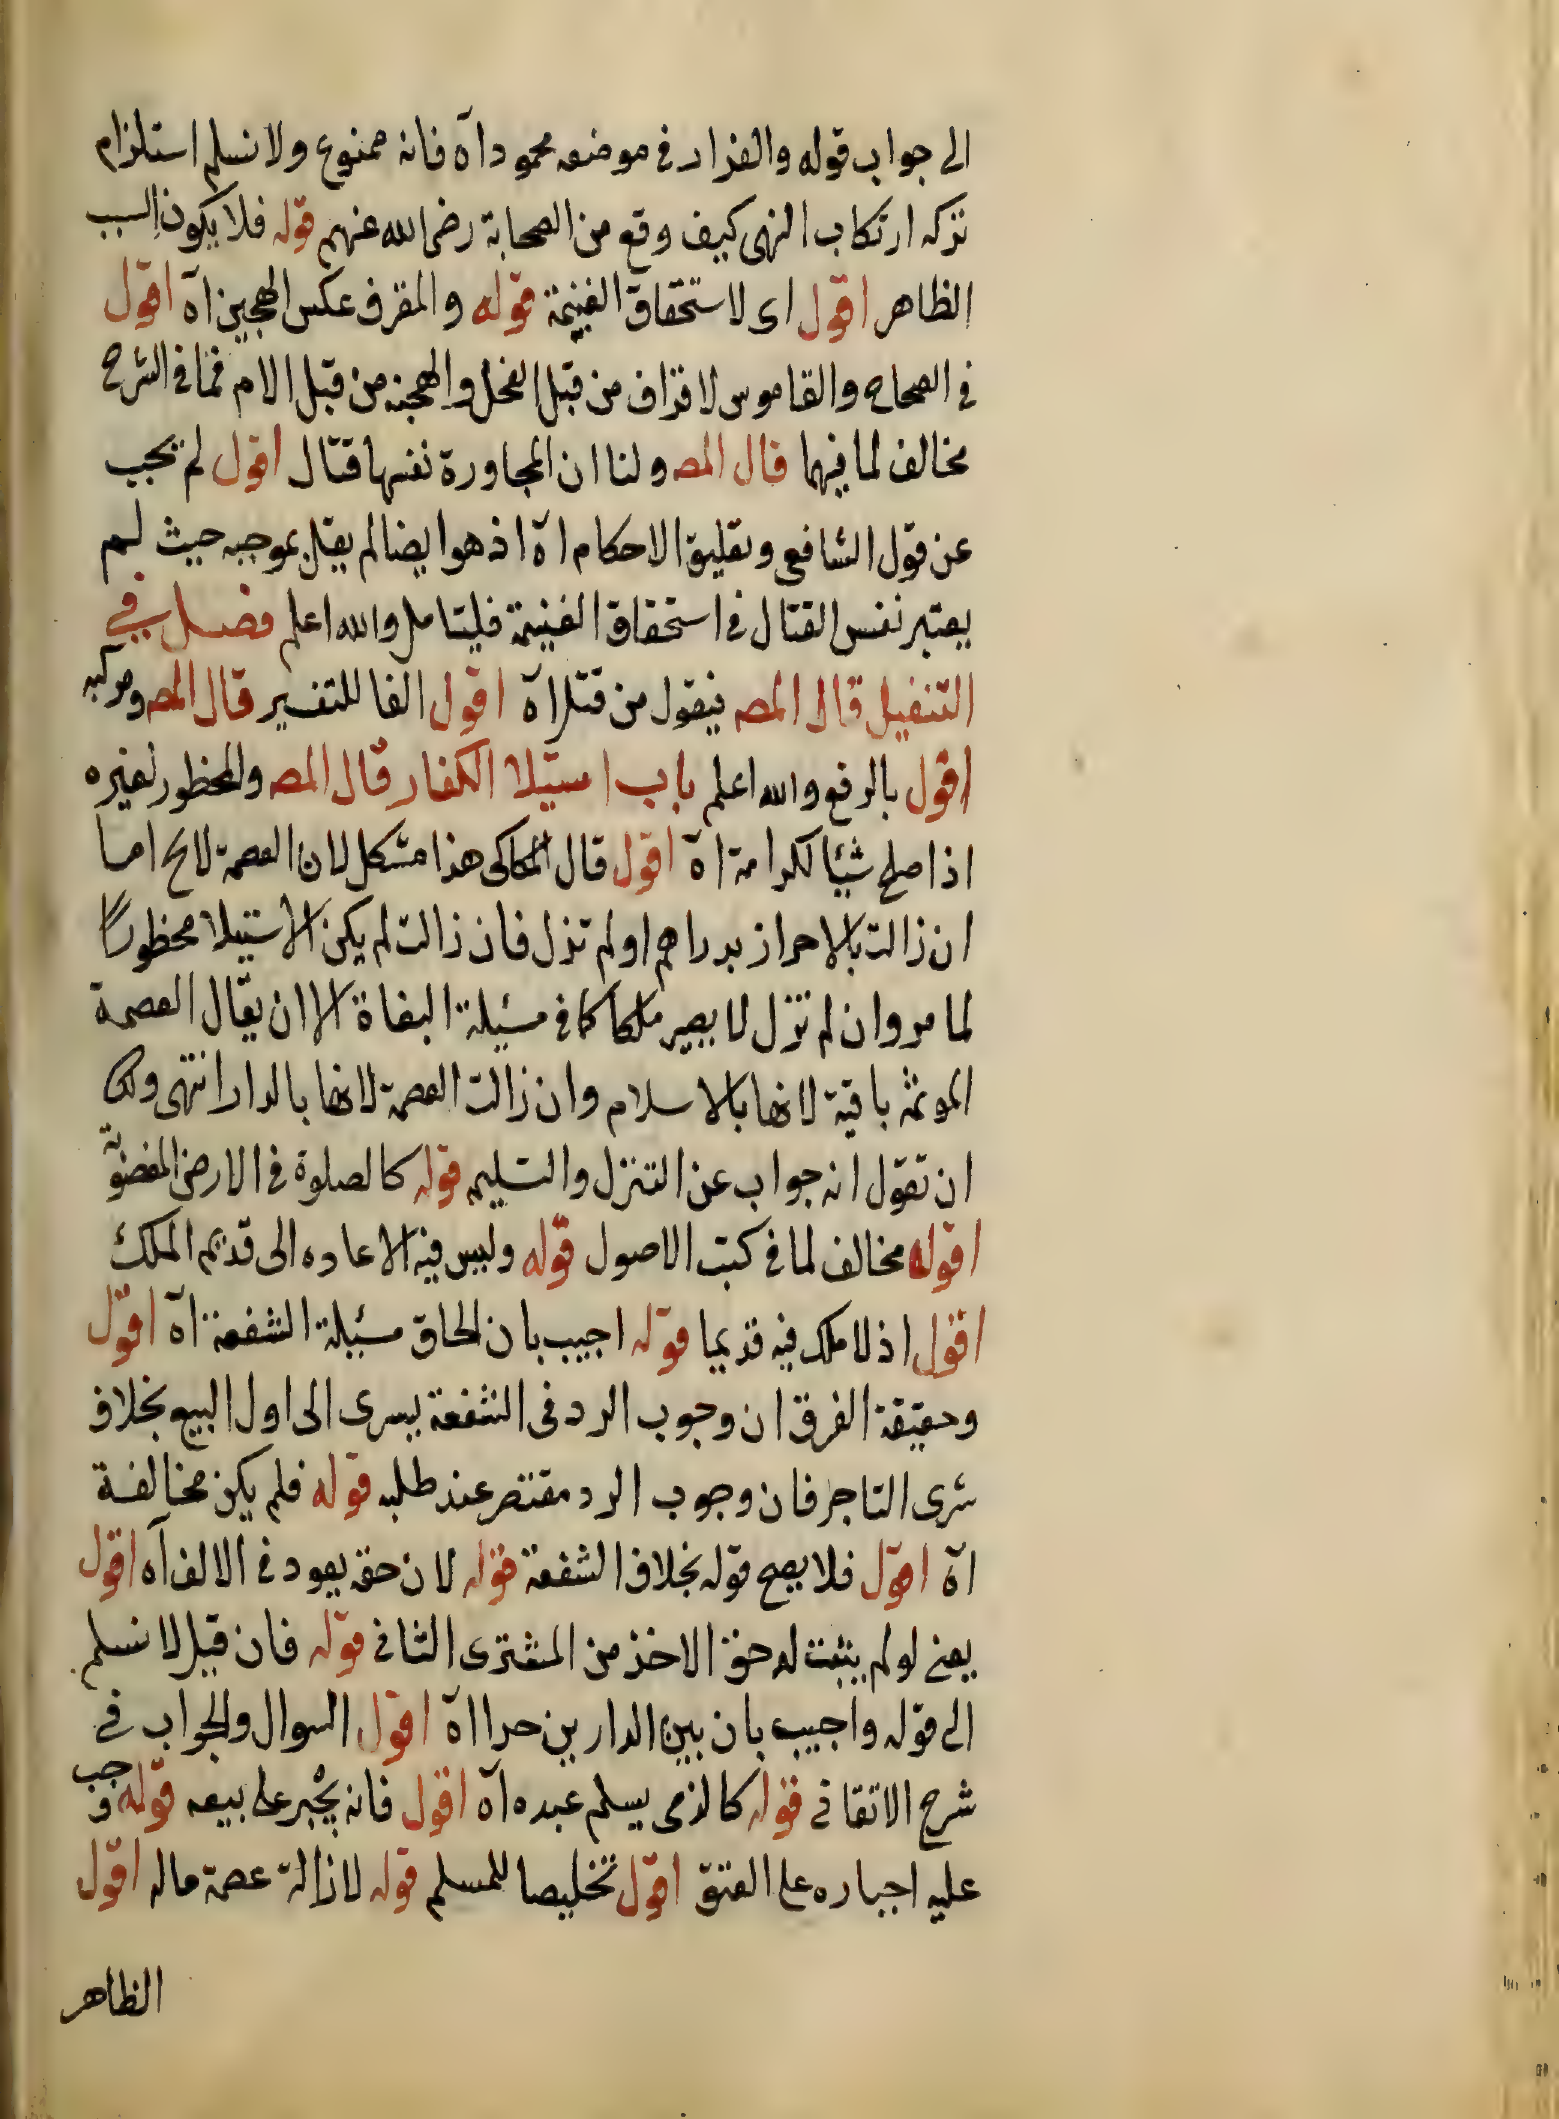 الى جواب قوله والفرار في موضعه محمود اه فانه ممنوع ولا نسلم استلزام
تركه ارتكاب النهى كيف وقع من الصحابة رضى الله عنهم قوله فلا يكون السبب
الظاهر اقول اى لاستحقاق الغنيمة قوله والمقرف عكس الهجين اه اقول
في الصحاح والقاموس الاقراف من قبل الفحل والهجنه من قبل الام فما في الشرح
مخالف لما فيهما قال المص ولنا ان المجاورة نفسها قتال اقول لم يجب
عن قول الشافعى وتعليق الاحكام اه اذ هو ايضا لم يقل بموجبه حيث لم
يعتبر نفس القتال في استحقاق الغنيمة فليتامل والله اعلم فصل في
التنفيل قال المص فيقول من قتل اه اقول الفا للتفسير قال المص ومركبه
اقول بالرفع والله اعلم باب استيلا الكفار قال المص والمحظور لغيره
اذا صلح شيئا لكرامة اه اقول قال الكاكى هذا مشكل لان العصمة لا يخ اما
ان زالت بالاحراز بدراهم او لم تزل فان زالت لم يكن الاستيلا محظورا
لما مر وان لم تزل لا يصير ملكا كما في مسئلة البغاة الا ان يقال العصمة
الموثمة باقية لانها بالاسلام وان زالت العصمة لانها بالدار انتهى ولك
ان تقول انه جواب عن التنزل والتسليم قوله كالصلوة في الارض المغصوبة
اقوله مخالف لما في كتب الاصول قوله وليس فيه الاعاده الى قديم الملك
اقول اذ لا ملك فيه قديما قوله اجيب بان الحاق مسئلة الشفعة اه اقول
وحقيقة الفرق ان وجوب الرد في الشفعة يسرى الى اول البيع بخلاف
شرى التاجر فان وجوب الرد مقتصر عند طلبه قوله فلم يكن مخالفة
اه اقول فلا يصح قوله بخلاف الشفعة قوله لان حقه يعود في الالف اه اقول
يعنى لو لم يثبت له حق الاخذ من المشترى الثانى قوله فان قيل لا نسلم
الى قوله واجيب بان بين الدارين حدا اه اقول السوال والجواب في
شرح الاتقانى قوله كالذمى يسلم عبده اه اقول فانه يجبر على بيعه قوله وجب
عليه اجباره على العتق اقول تخليصا للمسلم قوله لازالة عصمة ماله اقول
الظاهر